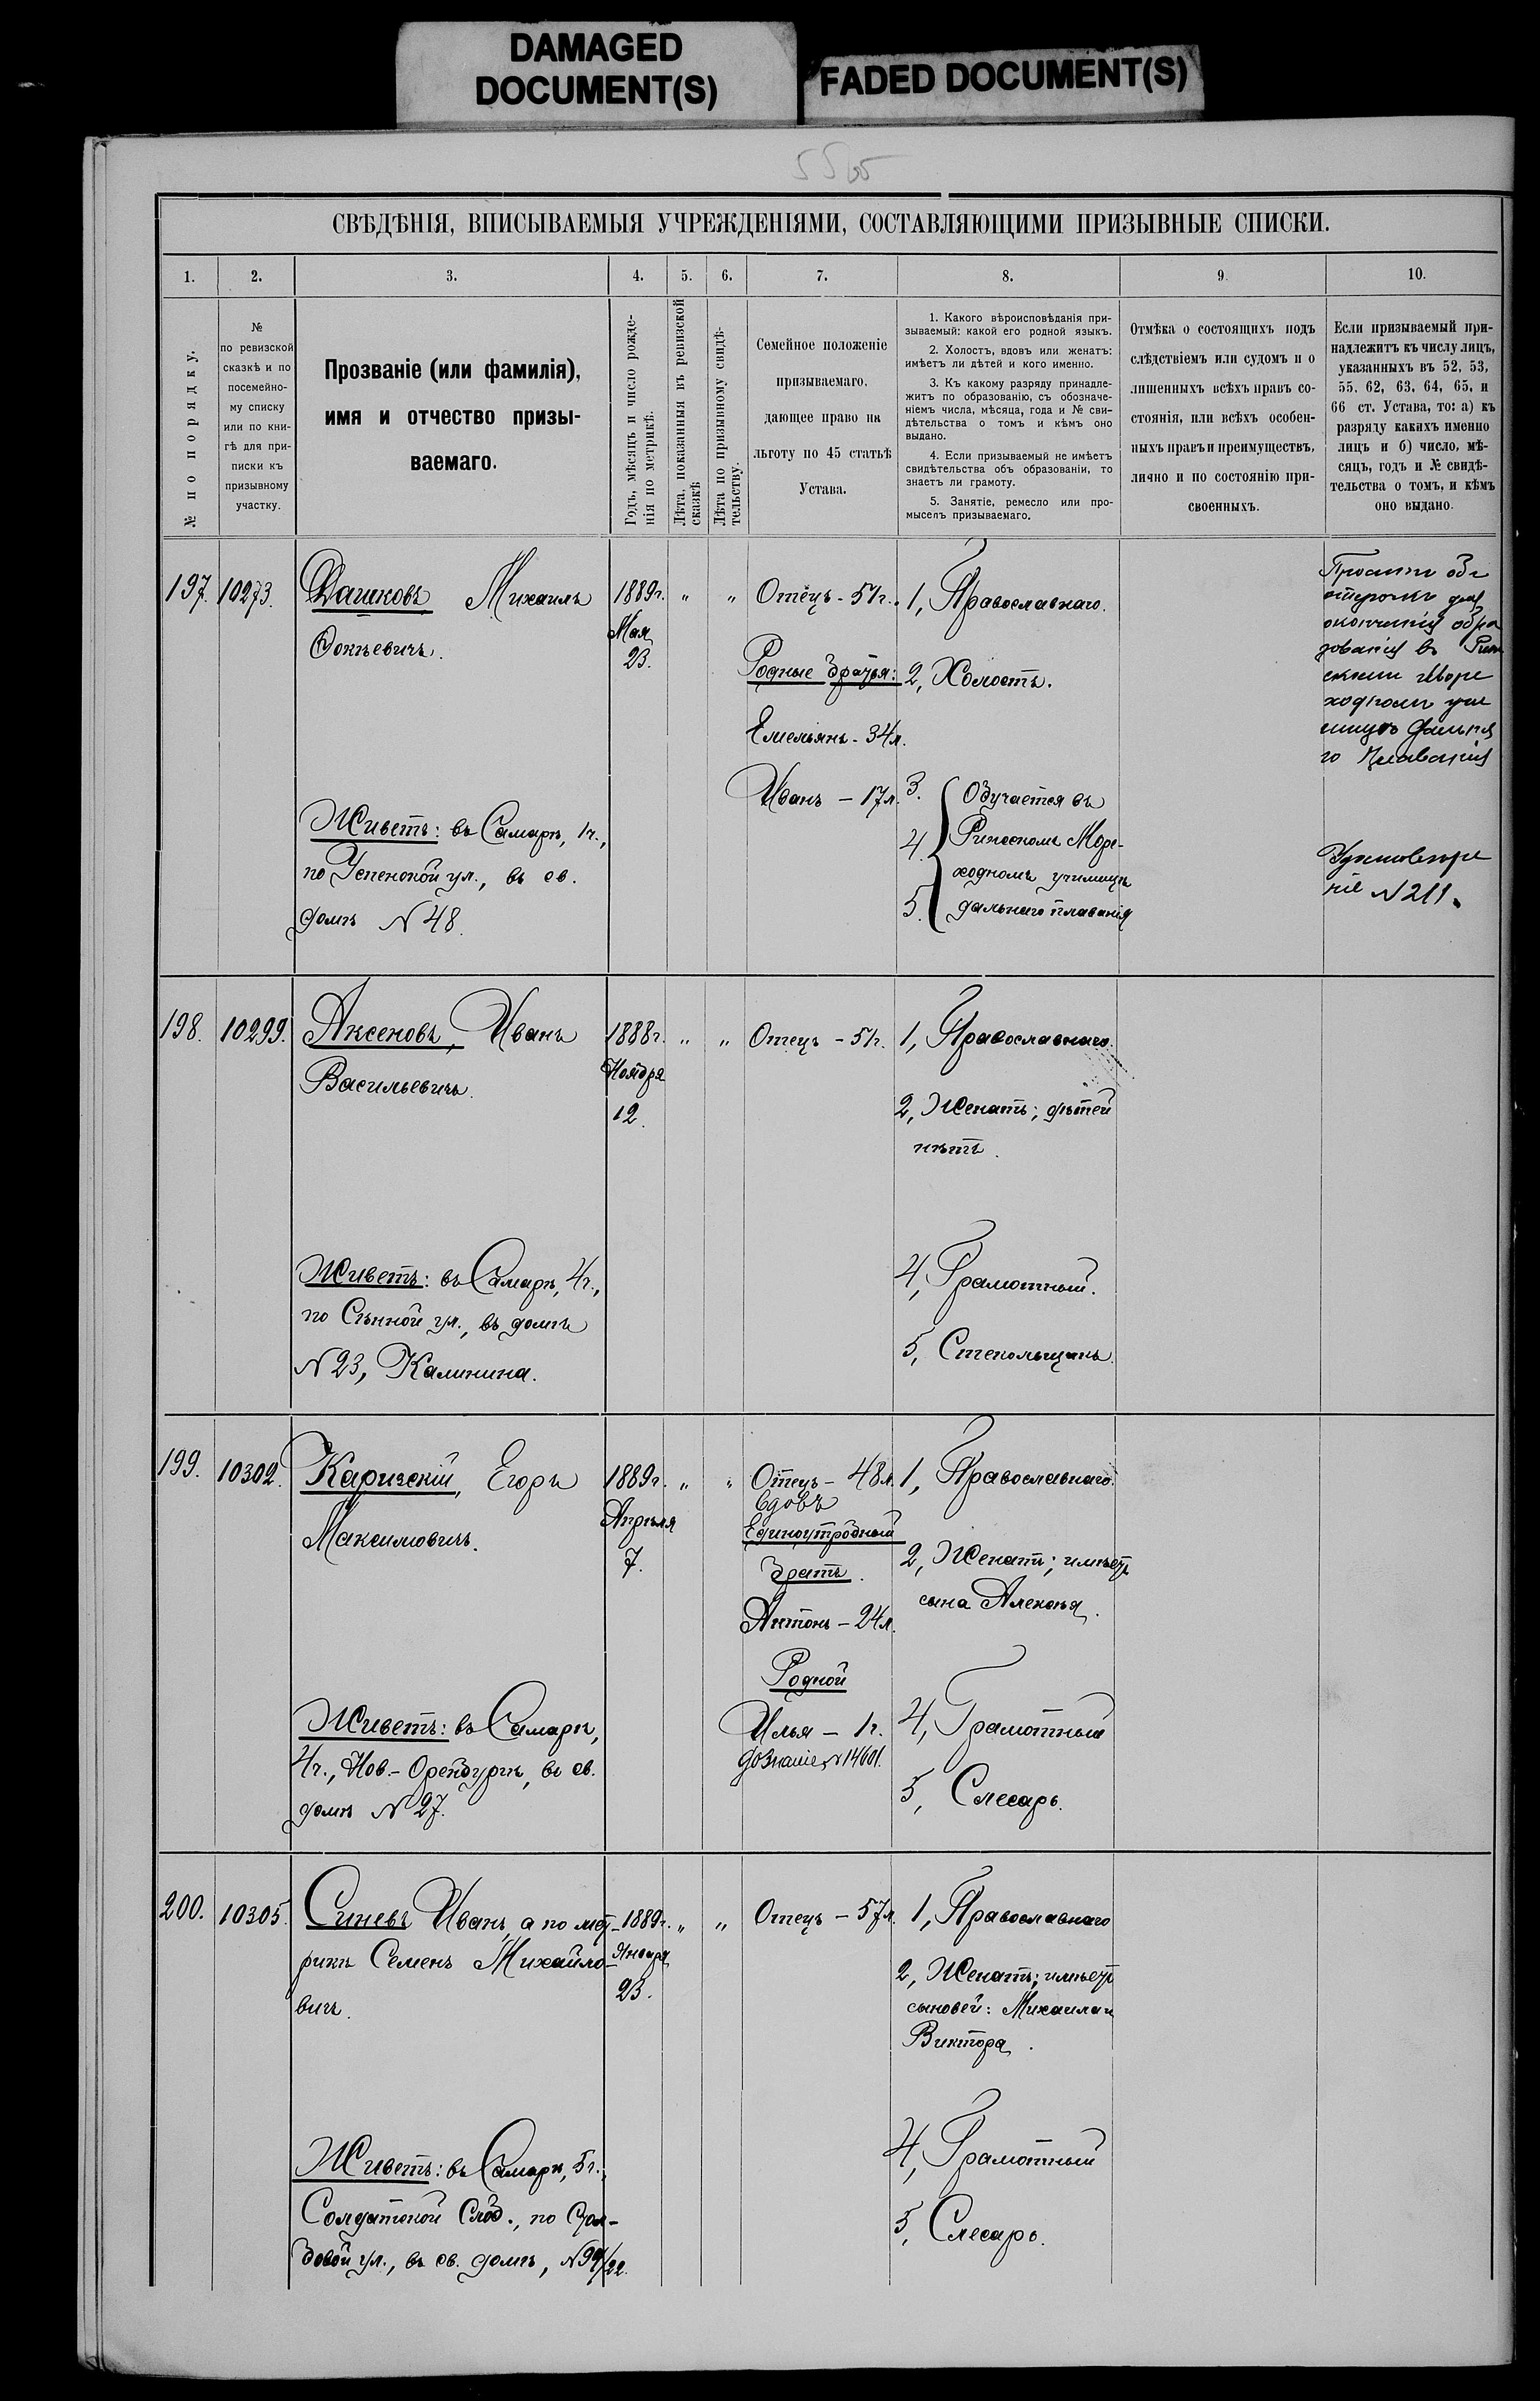 DAMAGED
DOCUMENT(S)
FADED DOCUMENT(S)
СВѢДѢНІЯ, ВПИСЫВАЕМЫЯ УЧРЕЖДЕНІЯМИ, СОСТАВЛЯЮЩИМИ ПРИЗЫВНЫЕ СПИСКИ.
1.
2.
3.
4.
5.
6.
7.
8.
9.
10.
№ по порядку.
№
по ревизской
сказкѣ и по
посемейно-
му списку
или по кни-
гѣ для при-
писки къ
призывному
участку.
Прозваніе (или фамилія),
имя и отчество призы-
ваемаго.
Годъ, мѣсяцъ и число рожде-
нія по метрикѣ.
Лѣта, показанныя въ ревизской
сказкѣ
Лѣта по призывному свидѣ-
тельству.
Семейное положеніе
призываемаго,
дающее право на
льготу по 45 статьѣ
Устава.
1. Какого вѣроисповѣданія при-
зываемый: какой его родной языкъ.
2. Холостъ, вдовъ или женатъ:
имѣетъ ли дѣтей и кого именно.
3. Къ какому разряду принадле-
житъ по образованію, съ обозначе-
ніемъ числа, мѣсяца, года и № сви-
дѣтельства о томъ и кѣмъ оно
выдано.
4. Если призываемый не имѣетъ
свидѣтельства объ образованіи, то
знаетъ ли грамоту.
5. Занятіе, ремесло или про-
мыселъ призываемаго.
Отмѣка о состоящихъ подъ
слѣдствіемъ или судомъ и о
лишенныхъ всѣхъ правъ со-
стоянія, или всѣхъ особен-
ныхъ правъ и преимуществъ,
лично и по состоянію при-
своенныхъ.
Если призываемый при-
надлежитъ къ числу лицъ,
указанныхъ въ 52, 53,
55, 62, 63, 64, 65, и
66 ст. Устава, то: а) къ
разряду какихъ именно
лицъ и б) число, мѣ-
сяцъ, годъ и № свидѣ-
тельства о томъ, и кѣмъ
оно выдано.
197.
10273.
Дашковъ Михаилъ
Фокѣевичъ.
Живетъ: въ Самарѣ, 1ч.,
по Успенской ул., въ св.
домѣ № 48.
1889г.
Мая
23.
"
"
Отецъ - 51г.
Родные братья:
Емельянъ - 34л.
Иванъ - 17л.
1, Православнаго.
2, Холостъ.
3.
4.
5.
Обучается въ
Рижскомъ Море-
ходномъ училищѣ
дальняго плаванія
отсрочкѣ для
окончанія обра
зованія въ
ходномъ учи
го плаванія
№ 211.
198.
10299.
Аксеновъ, Иванъ
Васильевичъ.
Живетъ: въ Самарѣ, 4ч.,
по Сѣнной ул., въ домѣ
№ 23, Калинина.
1888г.
Ноября
12.
"
"
Отецъ - 51г.
1, Православнаго.
2, Женатъ; дѣтей
нѣтъ.
4, Грамотный.
5, Стекольщикъ.
199.
10302.
Каризскій, Егоръ
Максимовичъ.
Живетъ: въ Самарѣ,
4ч., Нов.-Оренбургѣ, въ св.
домѣ № 27.
1889г.
Апрѣля
7.
"
"
Отецъ - 48л.
вдовъ
Единоутробный
братъ.
Антонъ - 24л.
Родной
Илья - 1г.
дознаніе № 14601.
1, Православнаго.
2, Женатъ; имѣетъ
сына Алексѣя.
4, Грамотный
5, Слесарь.
200.
10305.
Синевъ Иванъ, а по мет-
рикѣ Семенъ Михайло-
вичъ.
Живетъ: въ Самарѣ, 5ч.,
Солдатской Слоб., по
ул., въ св. домѣ, № 99/22.
1889г.
Января
23.
"
"
Отецъ - 57л.
1, Православнаго
2, Женатъ; имѣетъ
сыновей: Михаила и
Виктора.
4, Грамотный
5, Слесарь.